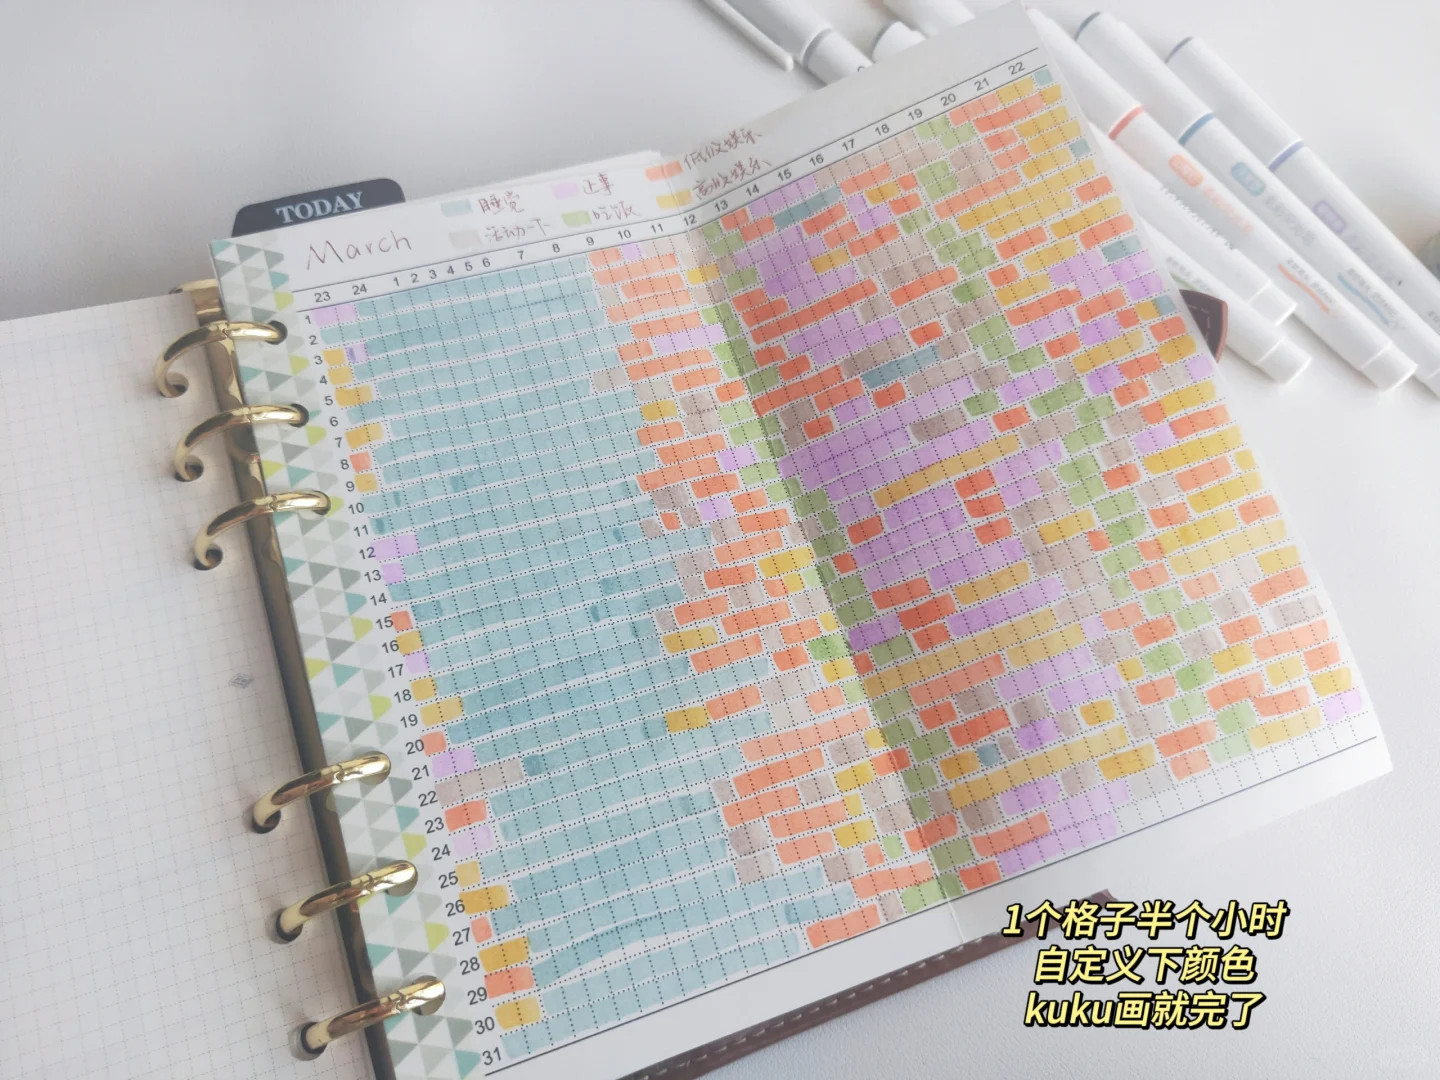 TODAY
March
睡觉
正事
低级娱乐
活动一下
吃饭
高级娱乐
23 24 1 2 3 4 5 6 7 8 9 10 11 12 13 14 15 16 17 18 19 20 21 22
1
2
3
4
5
6
7
8
9
10
11
12
13
14
15
16
17
18
19
20
21
22
23
24
25
26
27
28
29
30
31
1个格子半个小时
自定义下颜色
kuku画就完了